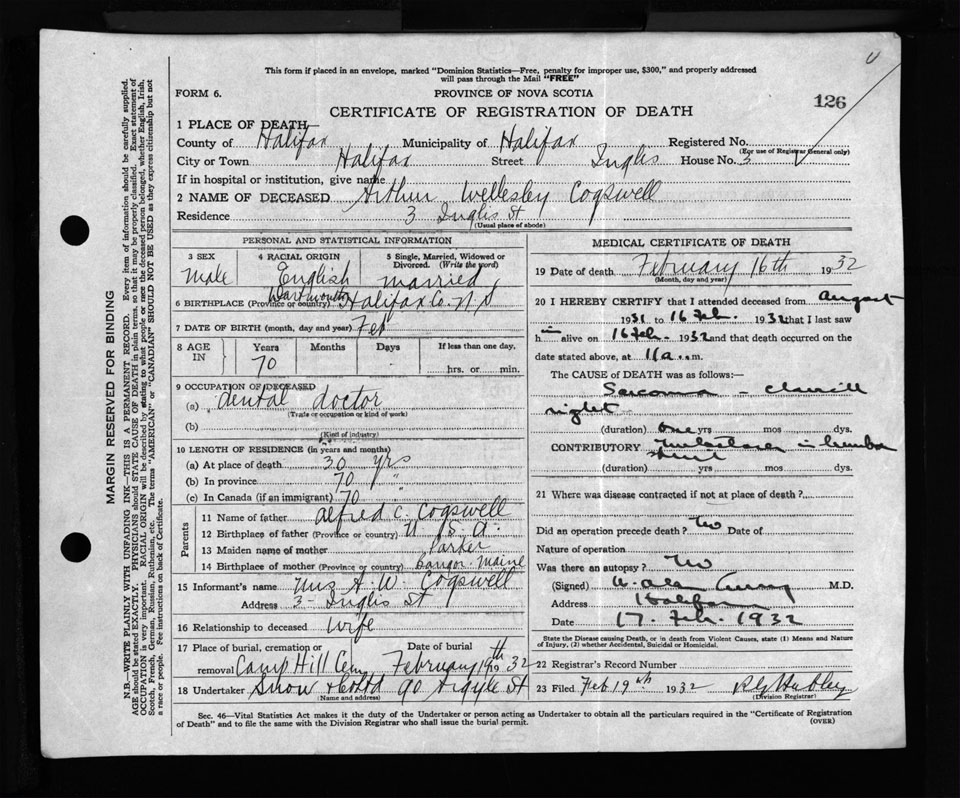 This form if placed in an envelope, marked "Dominion Statistics—Free, penalty for improper use, $300," and properly addressed
will pass through the Mail "FREE"
FORM 6.
PROVINCE OF NOVA SCOTIA
126
CERTIFICATE OF REGISTRATION OF DEATH
1 PLACE OF DEATH—
County of Halifax Municipality of Halifax Registered No.
(For use of Registrar General only)
City or Town Halifax Street Inglis House No. 3
If in hospital or institution, give name
2 NAME OF DECEASED Arthur Wellesley Cogswell
Residence 3 Inglis St
(Usual place of abode)
PERSONAL AND STATISTICAL INFORMATION
3 SEX 4 RACIAL ORIGIN 5 Single, Married, Widowed or
Divorced. (Write the word)
Male English married
6 BIRTHPLACE (Province or country) Dartmouth Halifax Co. N S
7 DATE OF BIRTH (month, day and year) Feb
8 AGE IN Years Months Days If less than one day.
70 hrs. or min.
9 OCCUPATION OF DECEASED
(a) dental doctor
(Trade or occupation or kind of work)
(b)
(Kind of industry)
10 LENGTH OF RESIDENCE (in years and months)
(a) At place of death 30 yrs
(b) In province 70 "
(c) In Canada (if an immigrant) 70
Parents
11 Name of father Alfred C. Cogswell
12 Birthplace of father (Province or country) U. S. A.
13 Maiden name of mother Parker
14 Birthplace of mother (Province or country) Bangor Maine
15 Informant's name Mrs A. W. Cogswell
Address 3 Inglis St
16 Relationship to deceased Wife
17 Place of burial, cremation or Date of burial
removal Camp Hill Cem February 19th 1932
18 Undertaker Snow & Co Ltd 90 Argyle St
(Name and address)
MEDICAL CERTIFICATE OF DEATH
19 Date of death February 16th 1932
(Month, day and year)
20 I HEREBY CERTIFY that I attended deceased from August
1931 to 16 Feb. 1932 that I last saw
him alive on 16 Feb. 1932 and that death occurred on the
date stated above, at 11 a. m.
The CAUSE of DEATH was as follows:—
Sarcoma
right
(duration) one yrs mos dys.
CONTRIBUTORY in lumbar
(duration) yrs mos dys.
21 Where was disease contracted if not at place of death?
Did an operation precede death? No Date of
Nature of operation
Was there an autopsy? No
(Signed) M.D.
Address Halifax
Date 17. Feb. 1932
State the Disease causing Death, or in death from Violent Causes, state (1) Means and Nature
of Injury, (2) whether Accidental, Suicidal or Homicidal.
22 Registrar's Record Number
23 Filed Feb 19th 1932
(Division Registrar)
Sec. 46—Vital Statistics Act makes it the duty of the Undertaker or person acting as Undertaker to obtain all the particulars required in the "Certificate of Registration
of Death" and to file the same with the Division Registrar who shall issue the burial permit.
(OVER)
MARGIN RESERVED FOR BINDING
N.B.—WRITE PLAINLY WITH UNFADING INK—THIS IS A PERMANENT RECORD. Every item of information should be carefully supplied.
AGE should be stated EXACTLY. PHYSICIANS should STATE CAUSE OF DEATH in plain terms, so that it may be properly classified. Exact statement of
OCCUPATION is very important. RACIAL ORIGIN will be described by stating to what people or race the deceased person belonged, whether English, Irish,
Scotch, French, German, Russian, Ruthenian, etc. The terms "AMERICAN" or "CANADIAN" SHOULD NOT BE USED as they express citizenship but not
a race or people. Fee instructions on back of Certificate.